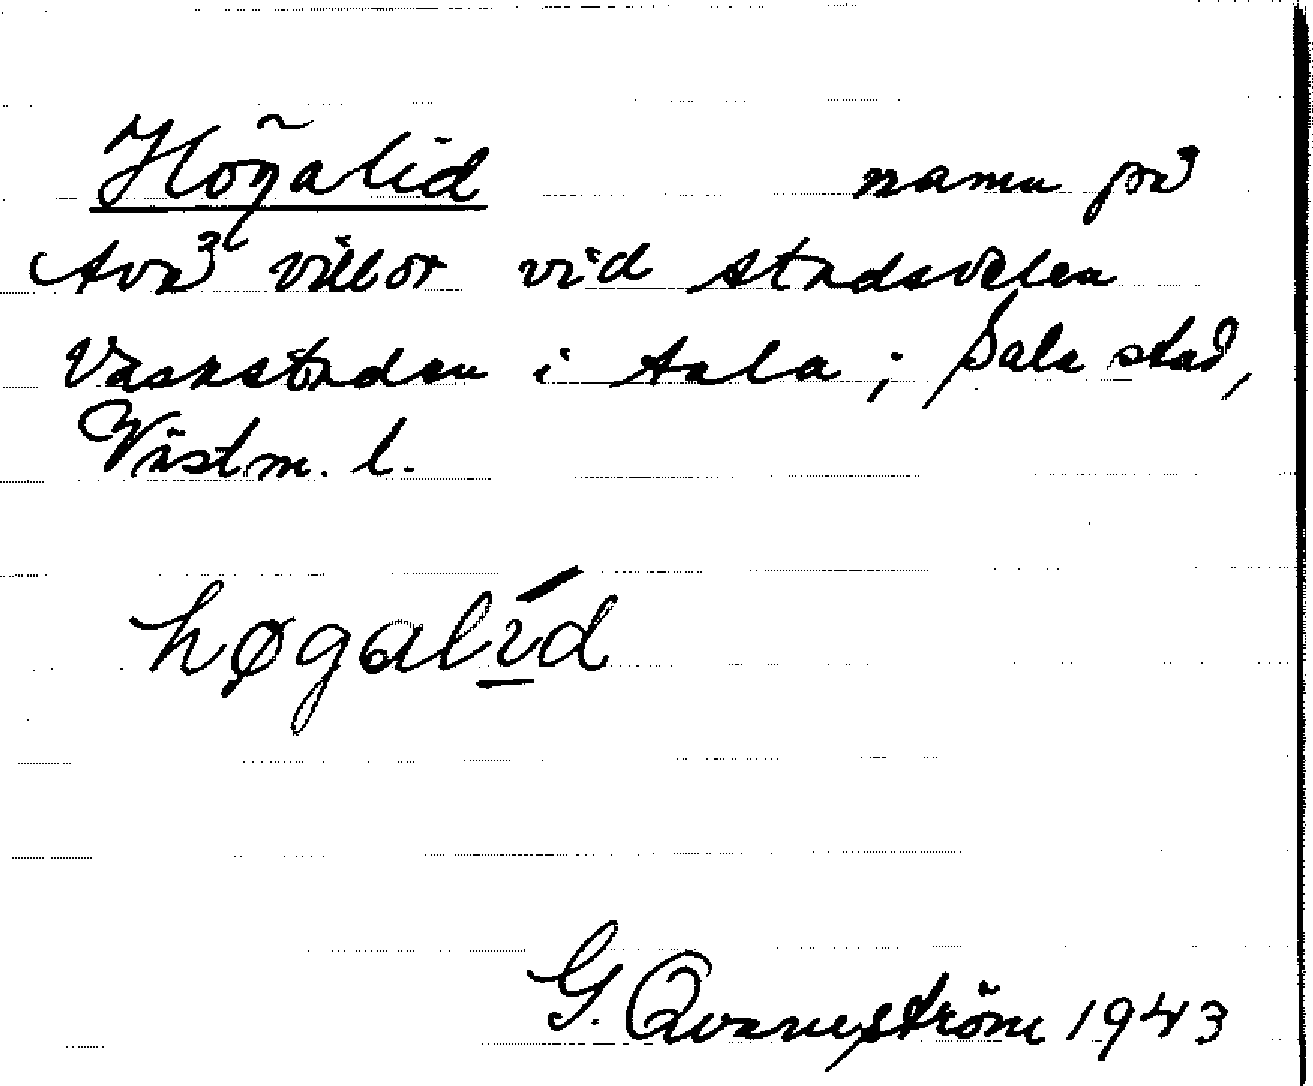 Högalid namn på
två villor vid stadsdelen
Väshstaden i Sala; Sala stad,
Västm. l.
høgalíd
G. Qvarneström 1943